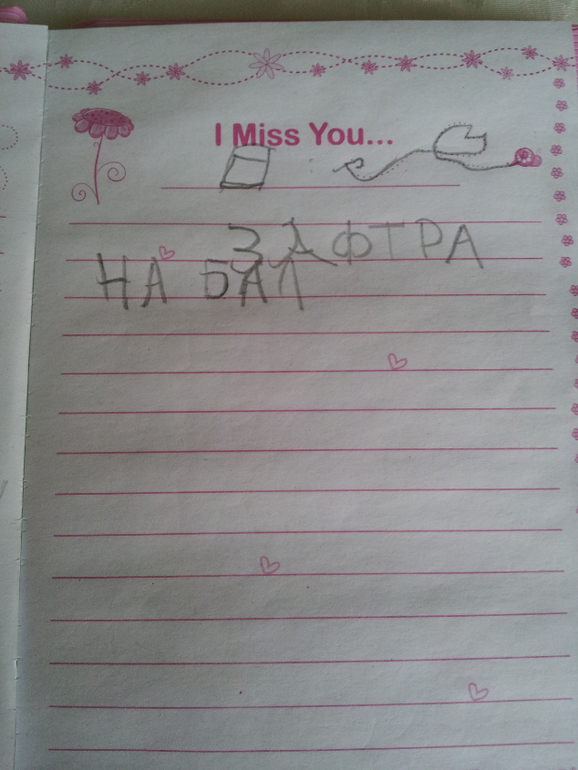 I Miss You...
ЗАФТРА
НА БАЛ